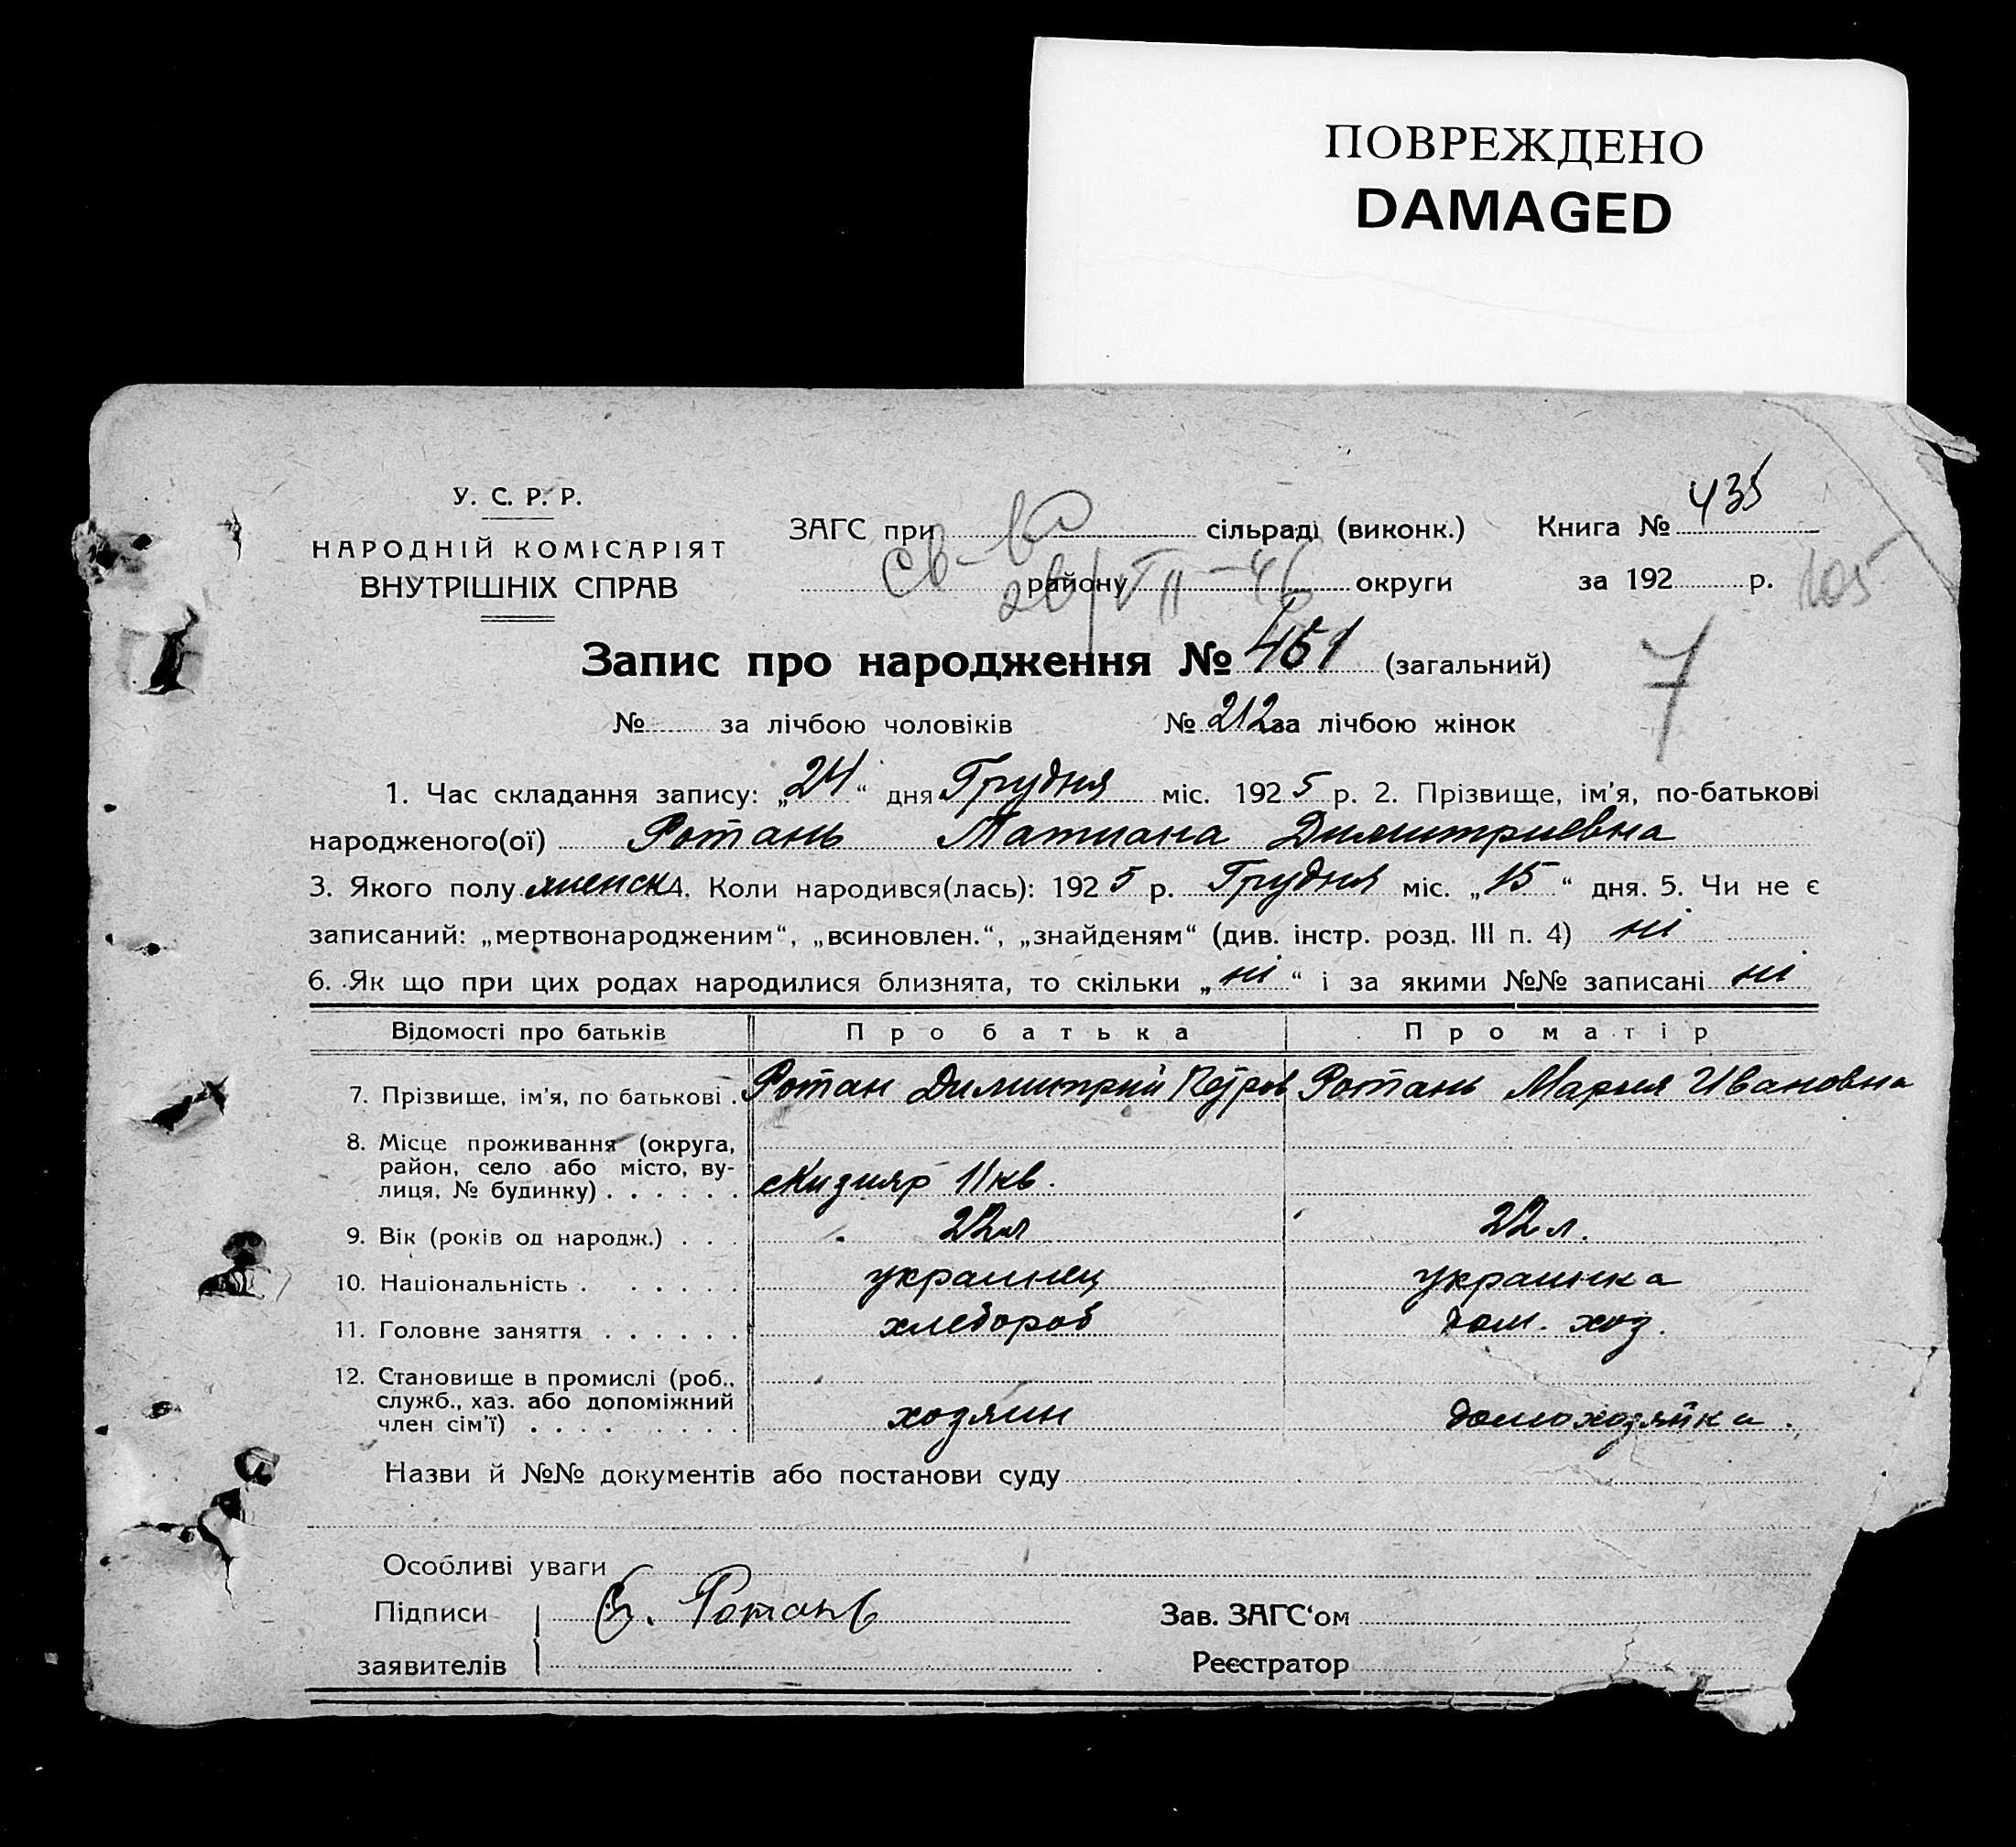 ПОВРЕЖДЕНО
DAMAGED
У. С. Р. Р.
НАРОДНІЙ КОМІСАРІЯТ
ВНУТРІШНІХ СПРАВ
ЗАГС при сільраді (виконк.)
Св-во
району округи
Книга № 435
за 192 р.
105
Запис про народження № 451 (загальний)
7
№ за лічбою чоловіків № 212 за лічбою жінок
1. Час складання запису: „24“ дня Грудня міс. 1925 р. 2. Прізвище, ім'я, по-батькові
народженого(ої) Ротань Татиана Димитриевна
3. Якого полу женск 4. Коли народився(лась): 1925 р. Грудня міс. „15“ дня. 5. Чи не є
записаний: „мертвонародженим“, „всиновлен.“, „знайденям“ (див. інстр. розд. III п. 4) ні
6. Як що при цих родах народилися близнята, то скільки „ні“ і за якими №№ записані ні
Відомості про батьків Про батька Про матір
7. Прізвище, ім'я, по батькові . Ротан Димитрий Петров Ротань Мария Ивановна
8. Місце проживання (округа,
район, село або місто, ву-
лиця, № будинку) . . . . . . Кизияр 11 кв.
9. Вік (років од народж.) . . . 22 л 22 л.
10. Національність . . . . . . украинец украинка
11. Головне заняття . . . . . . хлебороб дом. хоз.
12. Становище в промислі (роб.,
служб., хаз. або допоміжний
член сім'ї) . . . . . . . . . хозяин домохозяйка.
Назви й №№ документів або постанови суду
Особливі уваги
Підписи Ротань Зав. ЗАГС'ом
заявителів Реєстратор